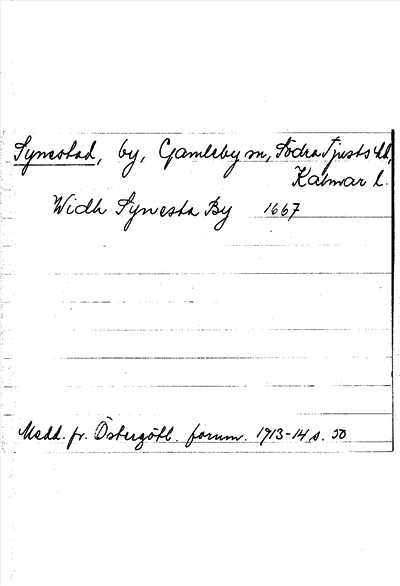 Synestad, by, Gamleby sn, Södra Tjusts hd,
Kalmar l.
Widh Synesta By 1667
Medd. fr. Östergötl. fornm. 1913-14 s. 50